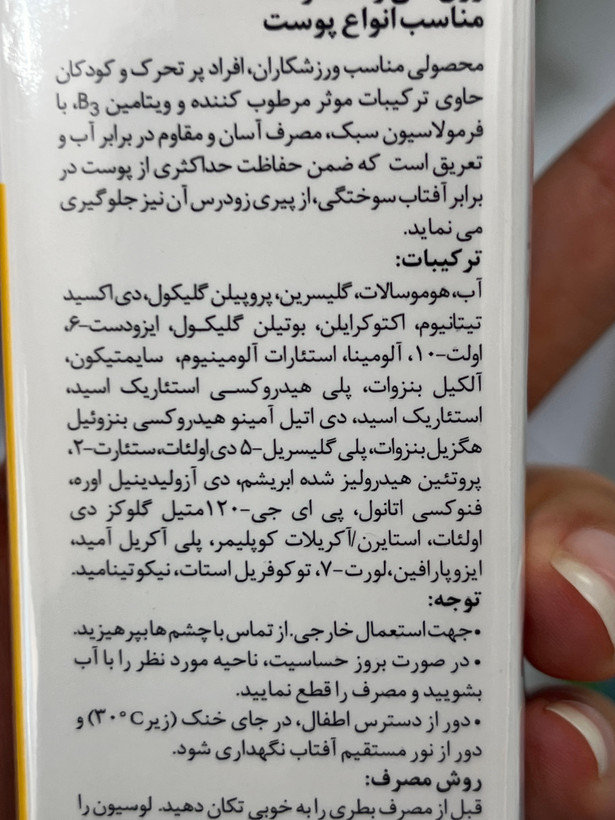 مناسب انواع پوست
محصولی مناسب ورزشکاران، افراد پر تحرک و کودکان
حاوی ترکیبات موثر مرطوب کننده و ویتامین B3، با
فرمولاسیون سبک، مصرف آسان و مقاوم در برابر آب و
تعریق است که ضمن حفاظت حداکثری از پوست در
برابر آفتاب سوختگی، از پیری زودرس آن نیز جلوگیری
می نماید.
ترکیبات:
آب، هوموسالات، گلیسرین، پروپیلن گلیکول، دی اکسید
تیتانیوم، اکتوکرایلن، بوتیلن گلیکول، ایزودست-۶،
اولت-۱۰، آلومینا، استئارات آلومینیوم، سایمتیکون،
آلکیل بنزوات، پلی هیدروکسی استئاریک اسید،
استئاریک اسید، دی اتیل آمینو هیدروکسی بنزوئیل
هگزیل بنزوات، پلی گلیسریل-۵ دی اولئات، ستئارت-۲،
پروتئین هیدرولیز شده ابریشم، دی آزولیدینیل اوره،
فنوکسی اتانول، پی ای جی-۱۲۰ متیل گلوکز دی
اولئات، استایرن/آکریلات کوپلیمر، پلی آکریل آمید،
ایزوپارافین، لورت-۷، توکوفریل استات، نیکوتینامید.
توجه:
•جهت استعمال خارجی. از تماس با چشم ها بپرهیزید.
• در صورت بروز حساسیت، ناحیه مورد نظر را با آب
بشویید و مصرف را قطع نمایید.
• دور از دسترس اطفال، در جای خنک (زیر ۳۰°C) و
دور از نور مستقیم آفتاب نگهداری شود.
روش مصرف:
قبل از مصرف بطری را به خوبی تکان دهید. لوسیون را